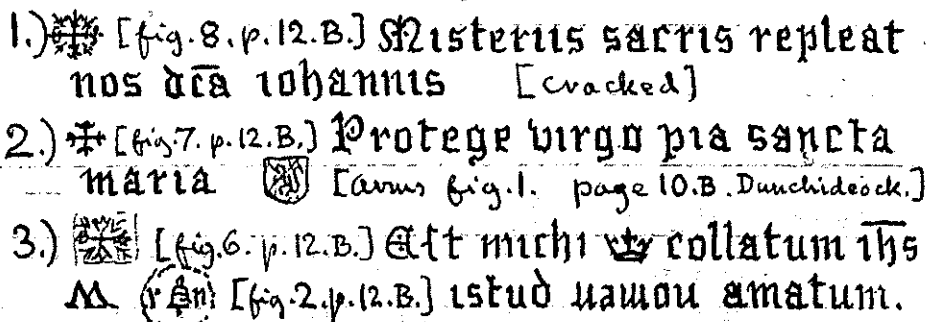 1.) [fig. 8. p. 12. B.] Misteriis sacris repleat
nos dc̄a iohannis [cracked]
2.) [fig. 7. p. 12. B.] Protege virgo pia sancta
maria [arms fig. 1. page 10. B. Dunchideock.]
3.) [fig. 6. p. 12. B.] Est michi collatum ih̄s
M r n [fig. 2. p. 12. B.] istud amatum.